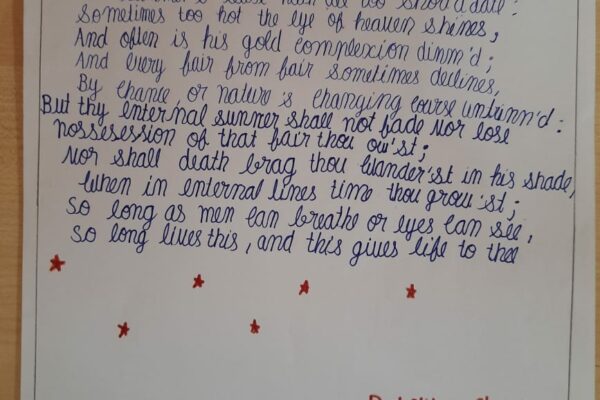 summer's lease hath all too short a date:
Sometimes too hot the eye of heaven shines,
And often is his gold complexion dimm'd;
And every fair from fair sometimes declines,
By chance, or nature's changing course untrimm'd:
But thy enternal summer shall not fade Nor lose
possesession of that fair thou ow'st;
Nor shall death brag thou wander'st in his shade,
When in enternal lines time thou grow'st;
So long as men can breathe or eyes can see,
So long lives this, and this gives life to thee